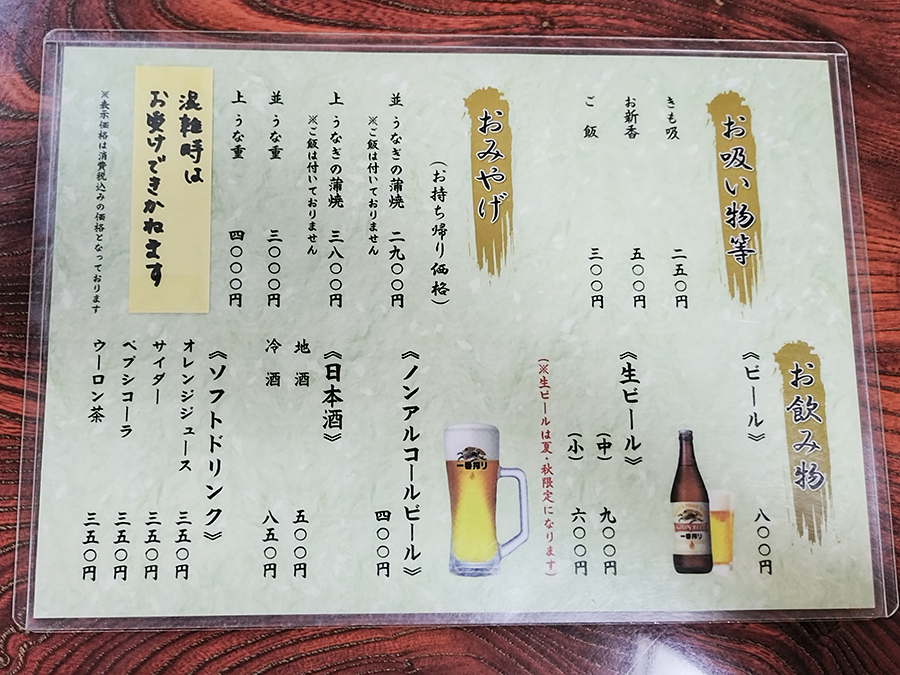 お吸い物等
きも吸 二五〇円
お新香 五〇〇円
ご飯 三〇〇円
おみやげ
(お持ち帰り価格)
並 うなぎの蒲焼 二九〇〇円
※ご飯は付いておりません
上 うなぎの蒲焼 三八〇〇円
※ご飯は付いておりません
並 うな重 三〇〇〇円
上 うな重 四〇〇〇円
混雑時は
お受けできかねます
※表示価格は消費税込みの価格となっております
お飲み物
《ビール》 八〇〇円
KIRIN BEER
一番搾り
《生ビール》
(中) 九〇〇円
(小) 六〇〇円
(※生ビールは夏・秋限定になります)
一番搾り
《ノンアルコールビール》
四〇〇円
《日本酒》
地酒 五〇〇円
冷酒 八五〇円
《ソフトドリンク》
オレンジジュース 三五〇円
サイダー 三五〇円
ペプシコーラ 三五〇円
ウーロン茶 三五〇円